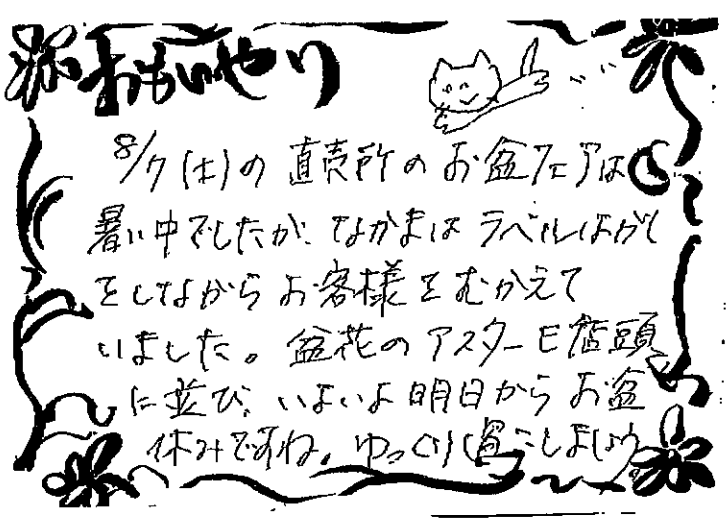 おもいやり
8/7(土)の直売所のお盆フェアは
暑い中でしたが、なかまはラベルはがし
をしながらお客様をむかえて
いました。盆花のアスターも店頭
に並び、いよいよ明日からお盆
休みですね。ゆっくり過ごしましょう